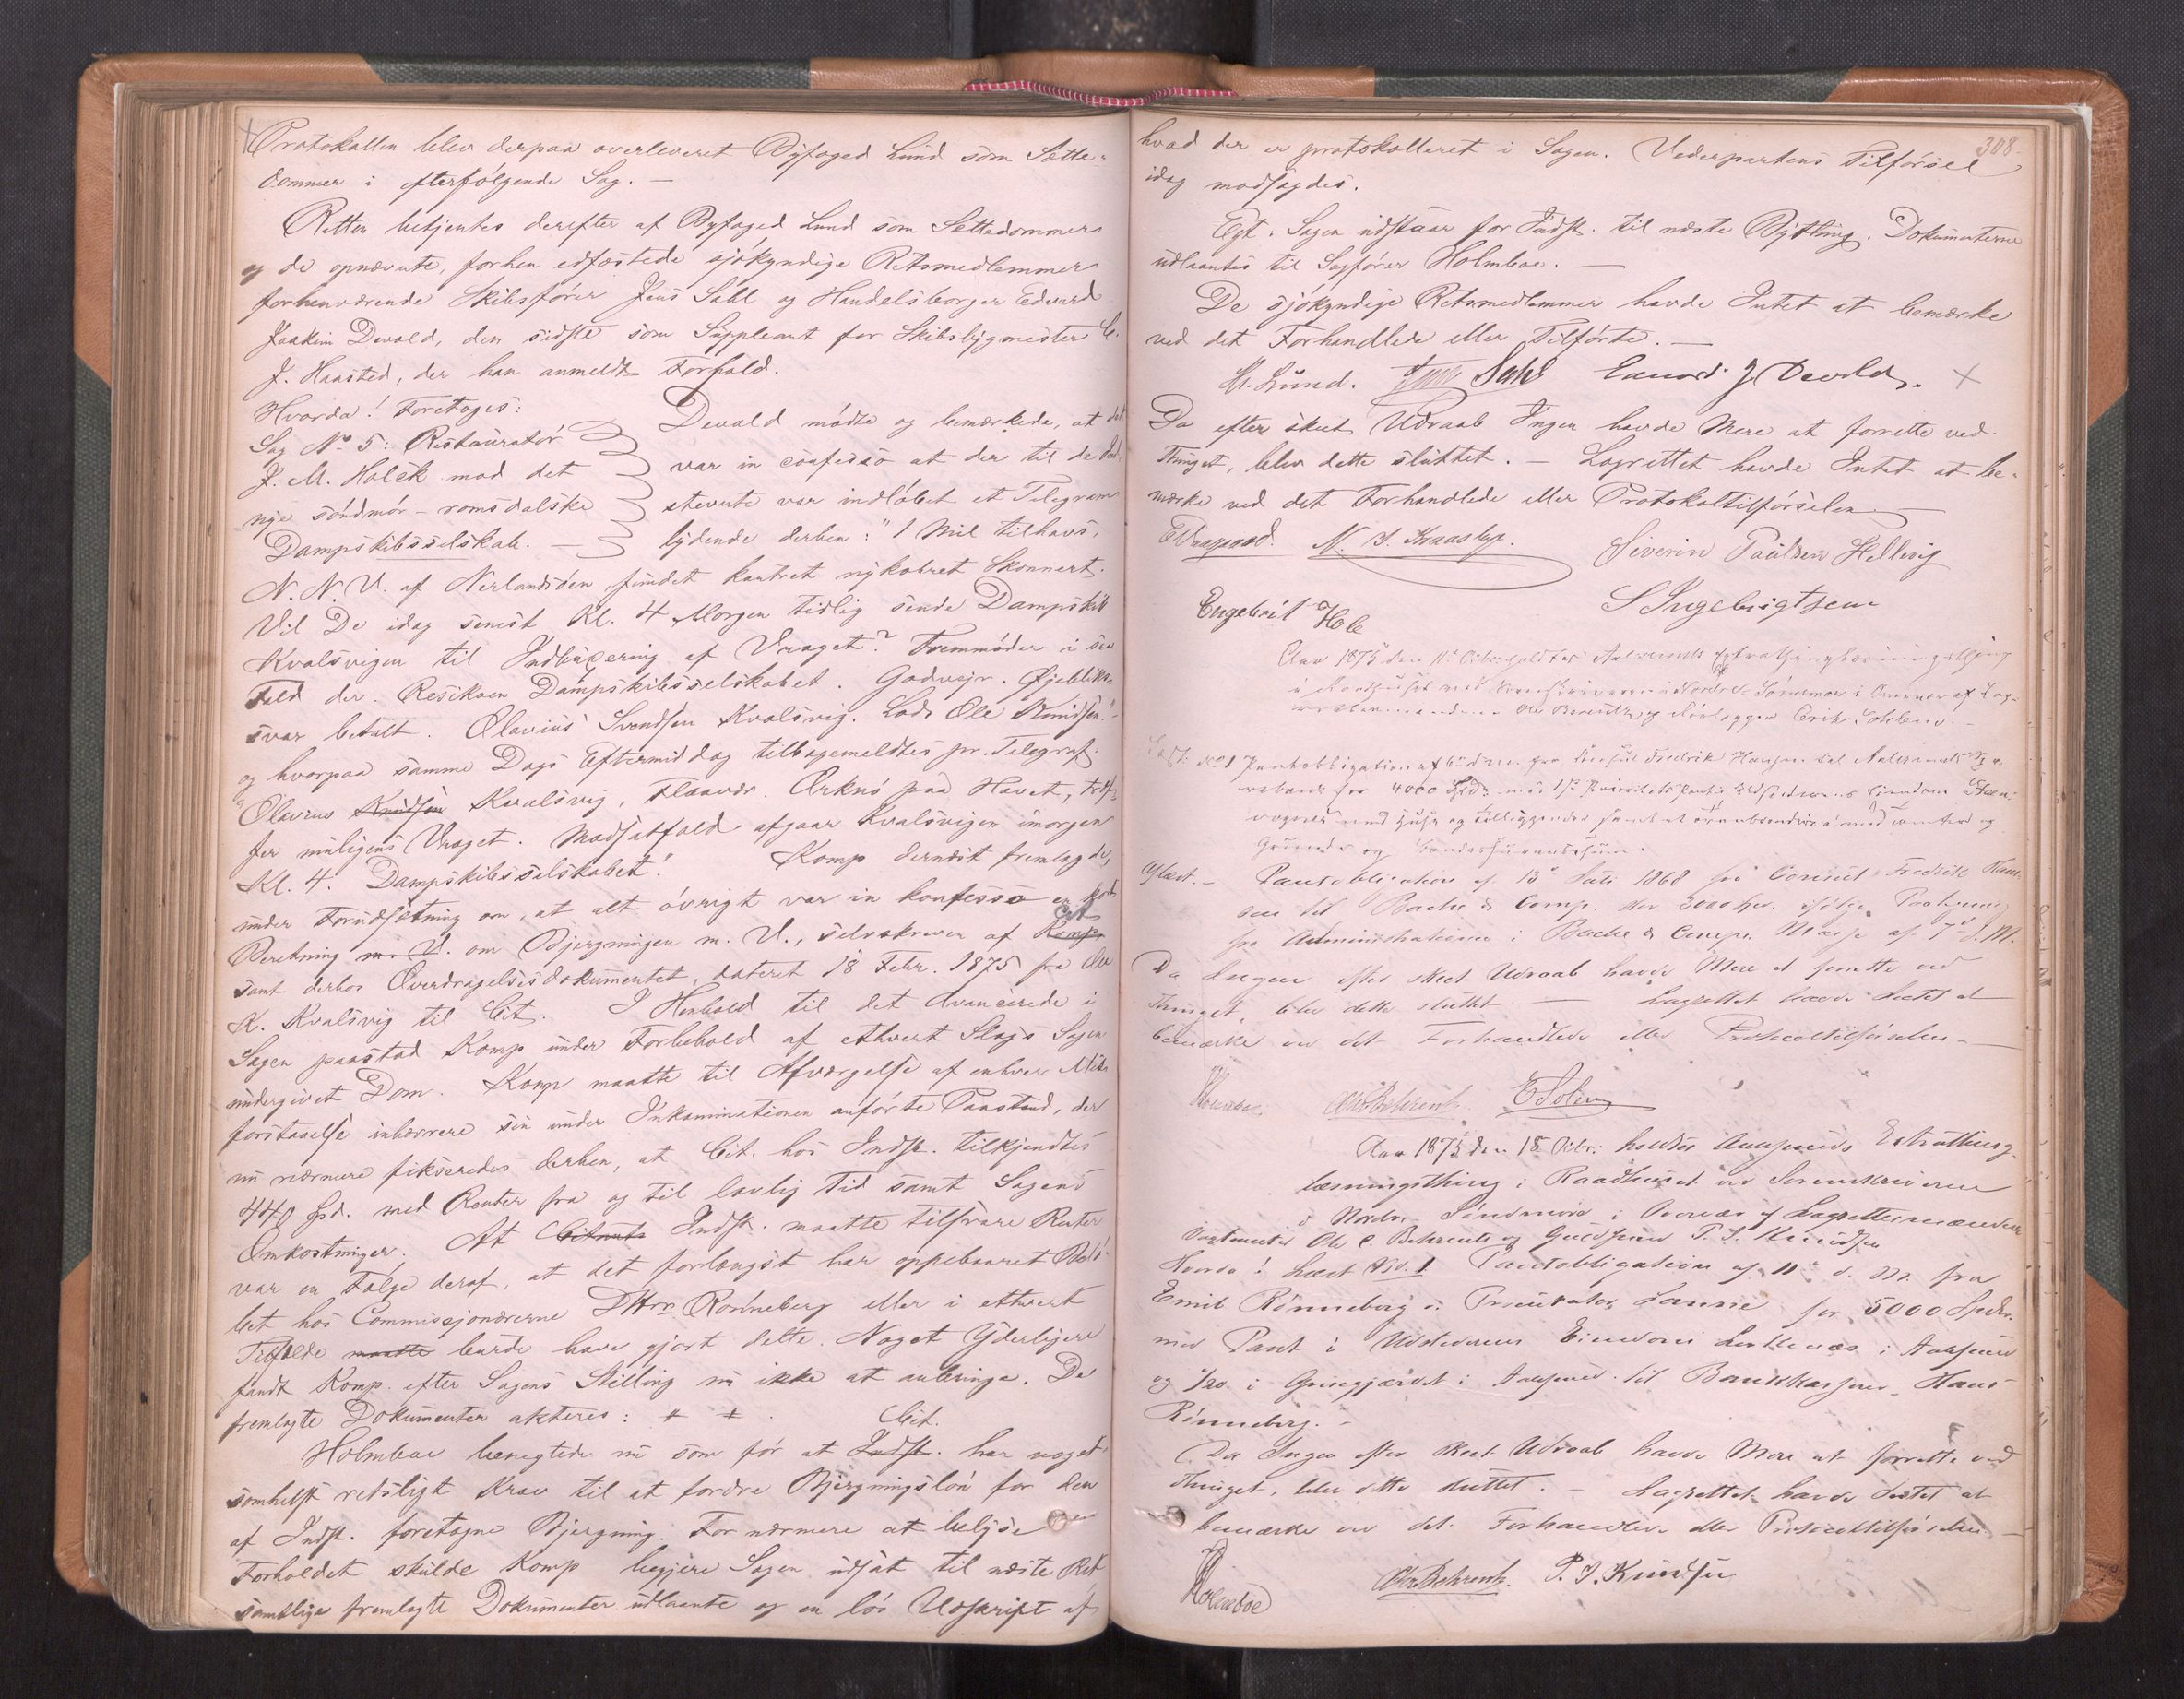 Protokollen blev derpaa overleveret Byfoged Lund som Sætte-
dommer i efterfølgende Sag. —
Retten betjentes derefter af Byfoged Lund som Settedommer
og de opnævnte, forhen edfæstede sjøkyndige Retsmedlemmer
forhenværende Skibsfører Jens Sahl og Handelsborger Edvard
Joakim Devold, den sidste som Suppleant for Skibsbygmester
J. Haasted, der han anmeldt Forfald.
Hvorda! Foretoges:
Sag No 5: Restauratør
J. M. Holck mod det
nye søndmør-romsdalske
Dampskibsselskab. —
Devold mødte og bemærkede, at det
var in confesso at der til de Ind-
stevnte var indløbet et Telegram
lydende derhen: "1 Mil tilhavs,
N. N. V. af Nerlandsøen fundet kantret nykobret Skonnert.
Vil De idag senest Kl. 4 Morgen tidlig sende Dampskib
Kvalsvigen til Indbugsering af Vraget? Fremmøder i saa
Fald der. Resikoen Dampskibsselskabet. Godvejr. Øjebliks-
svar betalt. Olavius Svendsen Kvalsvig. Lods Ole Knudsen."
og hvorpaa samme Dags Eftermiddag tilbagemeldtes pr. Telegraf:
"Olavius Knudsen Kvalsvig, Flaavær. Ørknø paa Havet, træf-
fer muligens Vraget. Modsatfald afgaar Kvalsvigen imorgen
Kl. 4. Dampskibsselskabet." Komp dernæst fremlagde,
under Forudsætning om, at alt øvrigt var in konfesso en
Beretning m. V. om Bjergningen m. V., selvskreven af Komp. Cit.
samt derhos Overdragelsesdokumentet, dateret 18 Febr. 1875 fra
K. Kvalsvig til Cit. I Henhold til det Avancerede i
Sagen paastod Komp under Forbehold af ethvert Slags Sagen
undergivet Dom. Komp maatte til Afværgelse af enhver Mis-
forstaaelse inhærere sin under Inkaminationen anførte Paastand, der
nu nærmere fikseredes derhen, at Cit. hos Indst. tilkjendtes
440 Spd. med Renter fra og til lovlig Tid samt Sagens
Omkostninger. At Citanten Indst. maatte tilsvare Renter
var en Følge deraf, at det forlængst har oppebaaret Belø-
bet hos Commissjonærerne DHrr Rønneberg eller i ethvert
Tilfælde maatte burde have gjort dette. Noget Yderligere
fandt Komp. efter Sagens Stilling nu ikke at anbringe. De
fremlagte Dokumenter akteres: # #.
Holmboe benegtede nu som før at Indst. Cit. har noget-
somhelst retsligt Krav til at fordre Bjergningsløn for den
af Indst. foretagne Bjergning. For nærmere at belyse
Forholdet skulde Komp begjere Sagen udsat til næste Ret
samtlige fremlagte Dokumenter udlaante og en løs Udskript af
308
hvad der er protokolleret i Sagen. Vederpartens Tilførsel
idag modsagdes.
Egt. Sagen udstaar for Indst. til næste Bything. Dokumenterne
udlaantes til Sagfører Holmboe. —
De sjøkyndige Retsmedlemmer havde Intet at bemærke
ved det Forhandlede eller Tilførte. —
M. Lund. Jens Sahl Edvard J Devold.
Da efter skeet Udraab Ingen havde Mere at forrette ved
Thinget, blev dette sluttet. — Lagrettet havde Intet at be-
mærke ved det Forhandlede eller Protokoltilførselen. —
N. J. Kraasbye. Siverin Paulsen Hellevig
Engebrit Hole S Ingebrigtsen
Aar 1875 den 11te Oktbr holdtes Aalesunds Extrathinglæsningsthing
i Raadhuset ved Sorenskriveren i Nordre Søndmør i Overvær af Lag-
rettesmændene Ole Berentz og Rørlægger Erik Solem. —
Læst: No 1 Pantobligation udstedt fra Konsul Fredrik Hansen til Aalesunds
for 4000 Spd. med 1ste Prioritets Pant i Udstederens Eiendom
Aflæst. — Pantobligation af 13de Juli 1868 fra Consul Fredrik Han-
sen til Backe & Comp. for 3000 Spd. ifølge Paategning
fra Administrationen i Backe & Comps. Masse af 7de d. M.
Da Ingen efter skeet Udraab havde Mere at forrette ved
Thinget, blev dette sluttet — Lagrettet havde Intet at
bemærke ved det Forhandlede eller Protocoltilførselen. —
Holmboe. Ole Behrentz. E Solem
Aar 1875 den 18 Oktbr: holdtes Aalesunds Extrathing-
læsningsthing i Raadhuset ved Sorenskriveren
i Nordre Søndmøre i Overvær af Lagrettesmændene
Ole C. Behrentz og P. J. Knudsen
Hvorda! Læst No. 1 Pantobligation af 11te d. M. fra
Emil Rønneberg & Prokurator Sannie for 5000 Spdlr.
med Pant i Udstederens Eiendom i Aalesund
og 1/20 i i Aalesund til Bankkasserer Hans
Rønneberg. —
Da Ingen efter skeet Udraab havde Mere at forrette ved
Thinget, blev dette sluttet. — Lagrettet havde Intet at
bemærke ved det Forhandlede eller Protocoltilførselen —
Holmboe Ole Behrentz. P. J. Knudsen